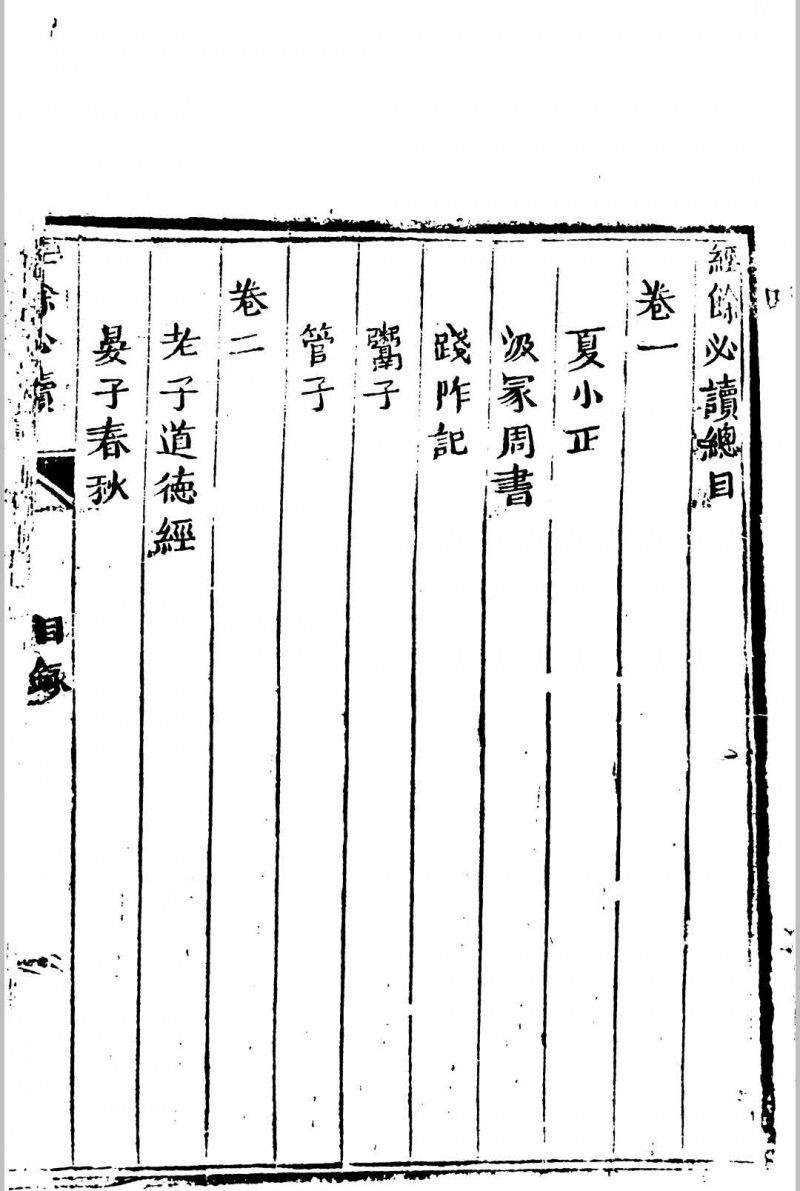 經餘必讀總目
卷一
夏小正
汲冢周書
踐阼記
鬻子
管子
卷二
老子道德經
晏子春秋
經餘必讀
目錄